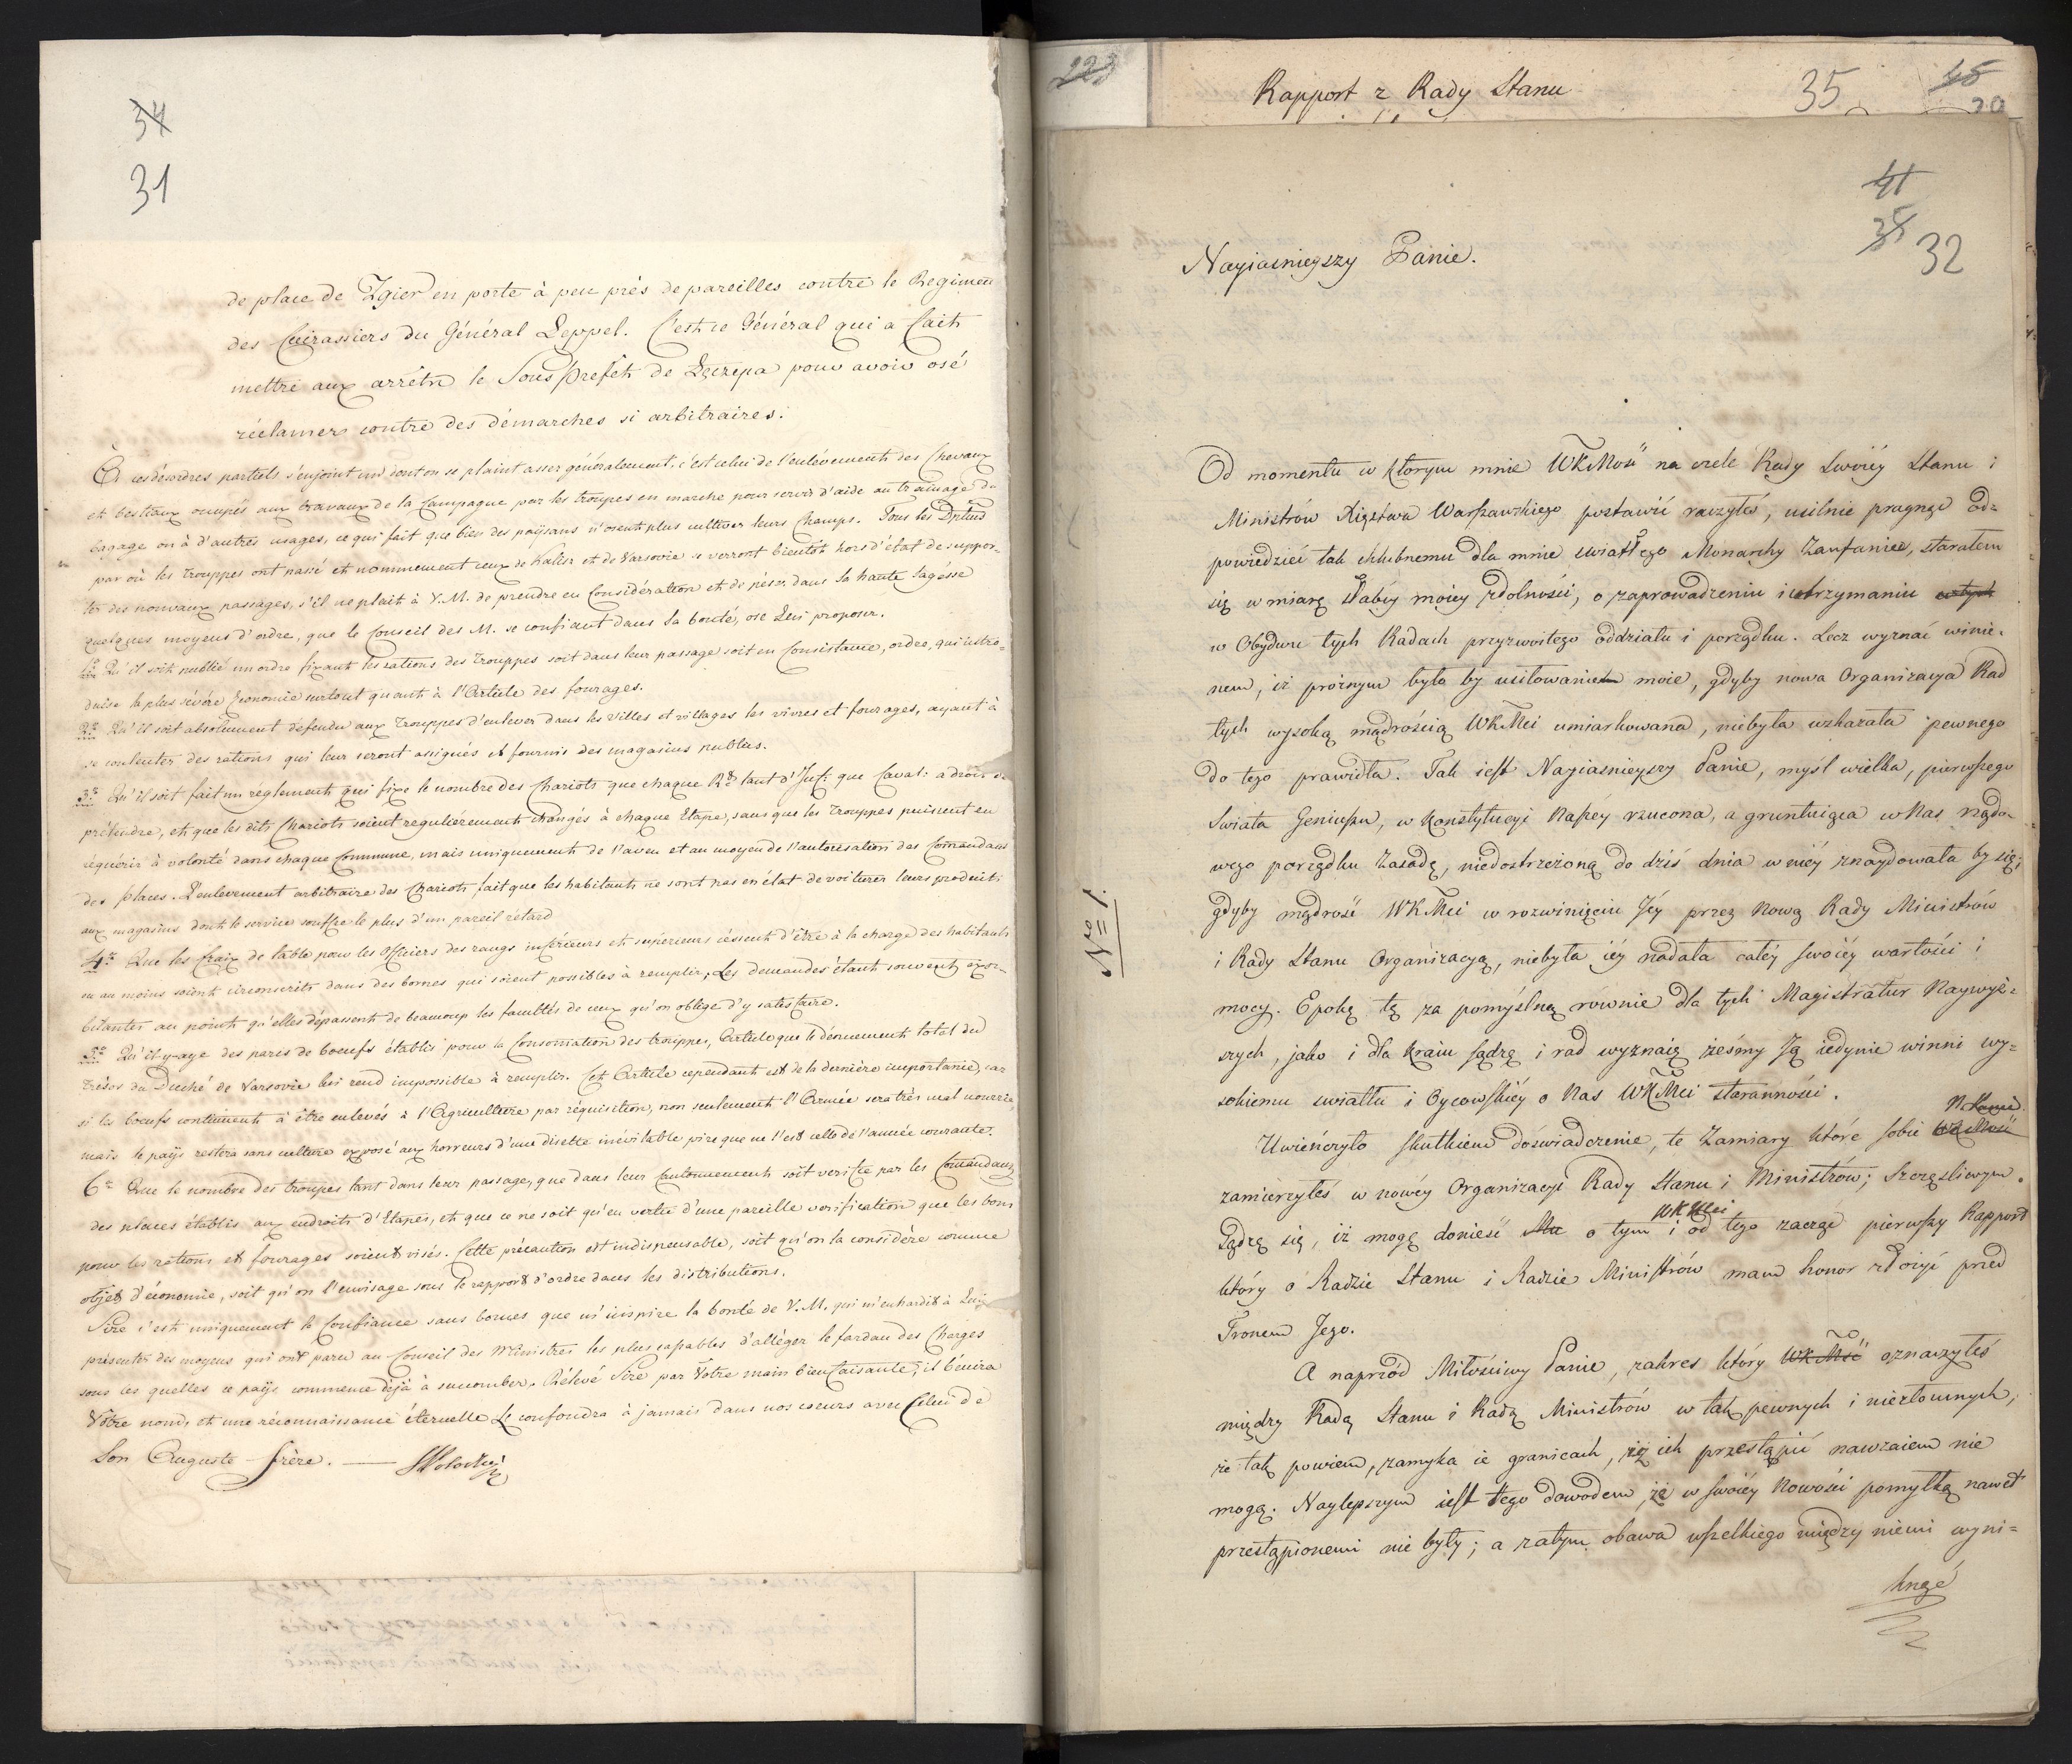 34
31
de place de Zgier en porte à peu près de pareilles contre le Regimen
des Cuirassiers du Général Leppel. C'est ce Général qui a fait
mettre aux arrêtre le Sous Prefet de Łęczyca pour avoir osé
réclamer contre des démarches si arbitraires.
À ces désordres partiels s'enjoint un dont on se plaint assez généralement, c'est celui de l'enlévement des Chevaux
et bestiaux occupés aux travaux de la Campagne par les troupes en marche pour servir d'aide au trainage du
bagage ou à d'autres usages, ce qui fait que bien des paÿsans n'osent plus cultiver leurs Champs. Tous les
par où les trouppes ont passé et nommement ceux de Kalisz et de Varsovie se verront bientôt hors d'état de suppor-
ter de nouvaux passages, s'il ne plait à V. M. de prendre en Considération et de péser dans Sa haute Sagesse
quelques moyens d'ordre, que le Conseil des M. se confiant dans Sa bonté, ose Lui proposer.
1º Qu'il soit publié un ordre fixant les rations des trouppes soit dans leur passage soit en Consistance, ordre, qui intro=
duise la plus sévére Economie surtout quant à l'Article des fourages.
2º Qu'il soit absolument défendu aux trouppes d'enlever dans les Villes et villages les vivres et fourages, ayant à
se contenter des rations qui leur seront assignés et fournis des magasins publics.
3º Qu'il soit fait un réglement qui fixe le nombre des Chariots que chaque Rgt tant d'Inf: que Caval: a droit de
prétendre, et que les dits Chariots soient regulierement changés à chaque Etape, sans que les Trouppes puissent en
réquérir à volonté dans chaque Commune, mais uniquement de l'aveu et au moyen de l'autorisation des Comandans
des places. L'enlevement arbitraire des Chariots, fait que les habitants ne sont pas en état de voiturer leurs produits
aux magasins dont le service souffre le plus d'un pareil rétard
4º Que les fraix de table pour les Officiers des rangs inférieurs et supérieurs cessent d'être à la charge des habitants
ou au moins soient circonscrits dans des bornes qui soient possibles à remplir, Les demandes étant souvent exor-
bitantes au point qu'elles dépassent de beaucoup les facultés de ceux qu'on oblige d'y satisfaire.
5º Qu'il-y-aye des parcs de boeufs établis pour la Consomation des trouppes, Article que le dénuement total du
Trésor du Duché de Varsovie lui rend impossible à remplir. Cet Article cependant est de la dernière importance, car
si les boeufs continuent à être enlevés à l'Agriculture par réquisition, non seulement l'Armée sera très mal nourrie,
mais le païs restera sans culture exposé aux horreurs d'une disette inévitable pire que ne l'est celle de l'année courante.
6º Que le nombre des troupes tant dans leur passage, que dans leur Cantonnement soit verifié par les Comandans
des places établis aux endroits d'Etapes, et que ce ne soit qu'en vertu d'une pareille vérification que les bons
pour les rations et fourages soient visés. Cette précaution est indispensable, soit qu'on la considère comme
objet d'économie, soit qu'on l'envisage sous le rapport d'ordre dans les distributions.
Sire c'est uniquement la Confiance sans bornes que m'inspire la bonté de V. M. qui m'enhardit à Lui
présenter des moyens qui ont paru au Conseil des Ministres les plus capables d'alléger le fardau des Charges
sous les quelles ce païs commence déjà à succomber. Rélevé Sire par Votre main bienfaisante, il bénira
Votre nom, et une réconnaissance éternelle Le confondra à jamais dans nos coeurs avec Celui de
Son Auguste Frère. — SPotocki
223
Rapport z Rady Stanu
35
45
41
35
32
Nayiasnieyszy Panie.
Od momentu w którym mnie WKMość na czele Rady Swoiéy Stanu i
Ministrów Xięstwa Warszawskiego postawić raczyłeś, usilnie pragnąc od=
powiedzieć tak chlubnemu dla mnie światłego Monarchy Zaufaniu, starałem
się w miarę słabéy moiéy zdolności, o zaprowadzeniu i utrzymaniu
w Obydwu tych Radach przyzwoitego oddziału i porządku. Lecz wyznać winie-
nem, iż próżnym było by usiłowanie moie, gdyby nowa Organizacya Rad
tych wysoką mądrością WKMci umiarkowana, niebyła wskazała pewnego
do tego prawidła. Tak iest Nayiasnieyszy Panie, myśl wielka, pierwszego
Swiata Geniuszu, w Konstytucyi Naszéy rzucona, a gruntuiąca w Nas rządo-
wego porządku Zasadę, niedostrzeżoną do dziś dnia w niéy znaydowała by się;
gdyby mądrość WKMci w rozwinięciu Jéy przez Nową Rady Ministrów
i Rady Stanu Organizacyą, niebyła iéy nadała całéy swoiéy wartości i
Nº 1.
mocy. Epokę tę za pomyślną równie dla tych Magistratur Naywyż=
szych, jako i dla kraiu sądzę i rad wyznaię żeśmy Ją iedynie winni wy=
sokiemu światłu i Oycowskiéy o Nas WKMci staranności.
N Panie
Uwieńczyło skutkiem doświadczenie, te Zamiary które sobie WKMość
zamierzyłeś w nowéy Organizacyi Rady Stanu i Ministrów; Szczęśliwym
WKMci
Sądzę się, iż mogę donieść Mu o tym i od tego zacząć pierwszy Rapport
który o Radzie Stanu i Radzie Ministrów mam honor złożyć przed
Tronem Jego.
A naprzód Miłościwy Panie, zakres który WKMść oznaczyłeś
między Radą Stanu i Radą Ministrów w tak pewnych i niezłomnych,
że tak powiem, zamyka ie granicach, iż ich przestąpić nawzaiem nie
mogą. Naylepszym iest tego dowodem, że w swoiéy Nowości pomyłką nawet
przestąpionemi nie były; a zatym obawa wszelkiego między niemi wyni=
knąć